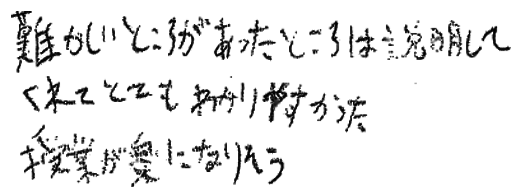 難かしいところがあったところは説明して
くれてとてもわかりやすかった
授業が楽になりそう